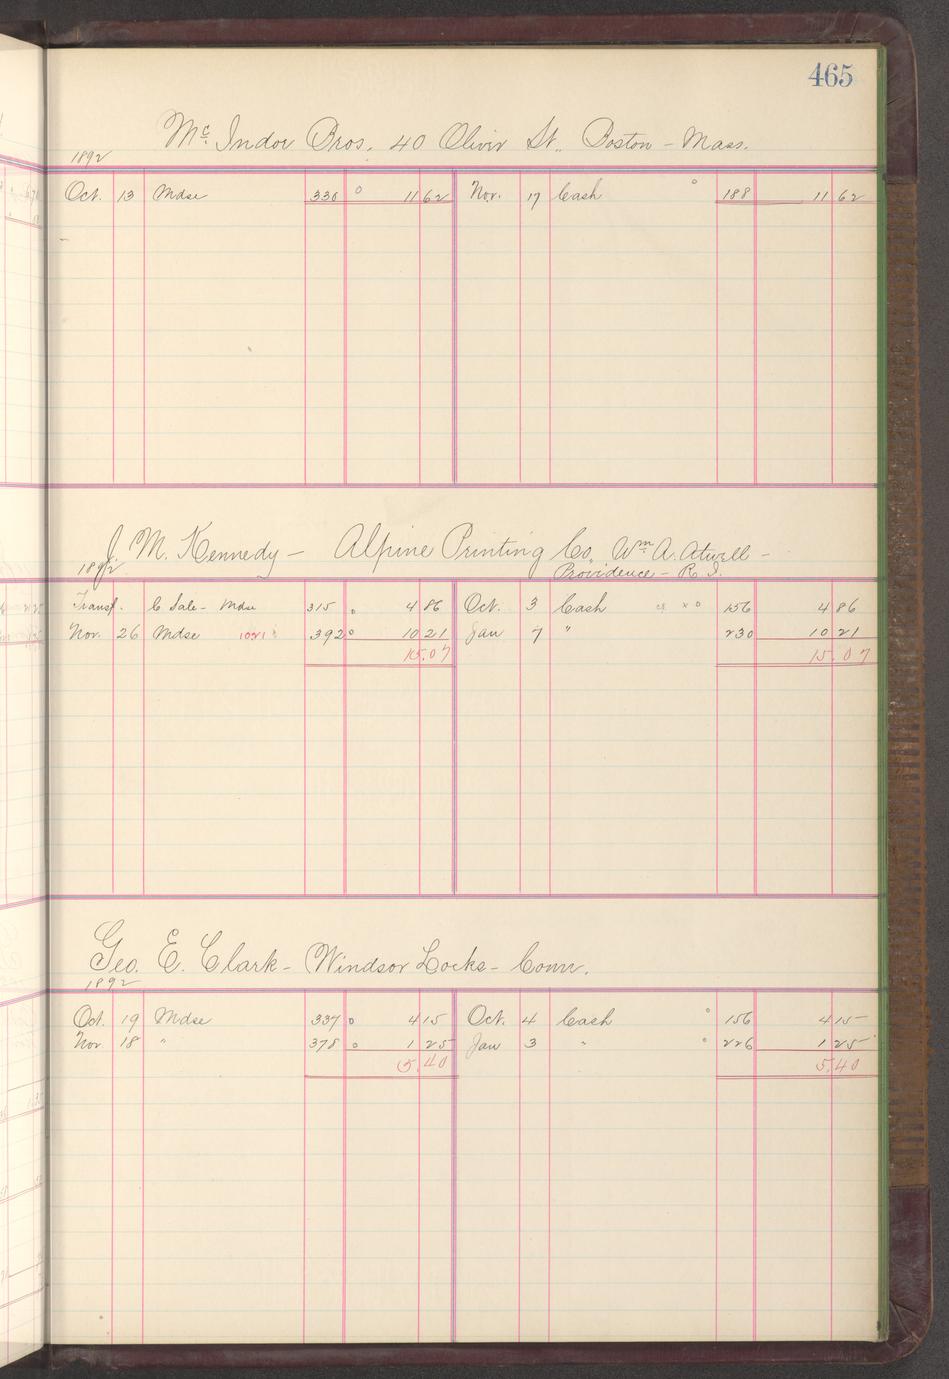 465
Mc. Indoe Bros. 40 Oliver St. Boston - Mass.
1892
Oct. 13 Mdse 330 11 62 Nov. 17 Cash 188 11 62
J. M. Kennedy - Alpine Printing Co. Wm. A. Atwell -
1892 Providence - R. I.
Transf. C Sale - Mdse 315 4 86 Oct. 3 Cash 156 4 86
Nov. 26 Mdse 1021 392 10 21 Jan 7 " 230 10 21
15.07 15.07
Geo. E. Clark - Windsor Locks - Conn.
1892
Oct. 19 Mdse 337 4 15 Oct. 4 Cash 156 4 15
Nov 18 " 378 1 25 Jan 3 " 226 1 25
5.40 5.40